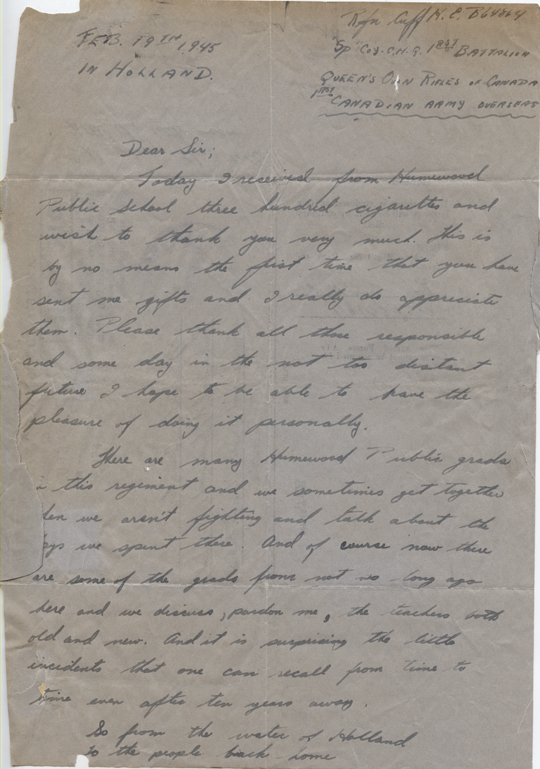 Rfn Cuff K. E. B64864
FEB. 19TH, 1945
Sp Coy. C.N.Q. 1ST BATTALION
IN HOLLAND.
QUEEN'S OWN RIFLES OF CANADA
CANADIAN ARMY OVERSEAS
Dear Sir;
Today I received from Humewood
Public School three hundred cigarettes and
wish to thank you very much. This is
by no means the first time that you have
sent me gifts and I really do appreciate
them. Please thank all those responsible
and some day in the not too distant
future I hope to be able to have the
pleasure of doing it personally.
There are many Humewood Public grads
this regiment and we sometimes get together
we aren't fighting and talk about the
we spent there. And of course now there
are some of the grads from not so long ago
here and we discuss, pardon me, the teachers both
old and new. And it is surprising the little
incidents that one can recall from time to
time even after ten years away.
So from the water of Holland
to the people back home